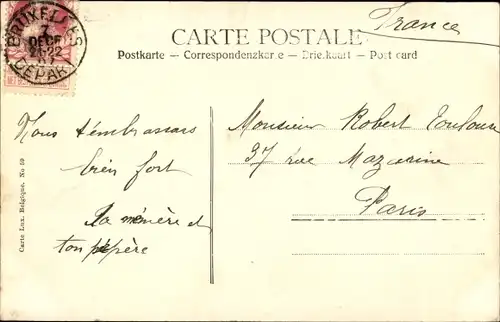 France
BRUXELLES
7
DECE
21-22
07
DEPART
CARTE POSTALE
Postkarte — Correspondenzkarte — Briefkaart — Post card
Nous t'embrassons
bien fort
ta mémère et
ton pépère
Monsieur Robert Toulouse
37 rue Mazarine
Paris
Carte Lux. Belgique. No 59